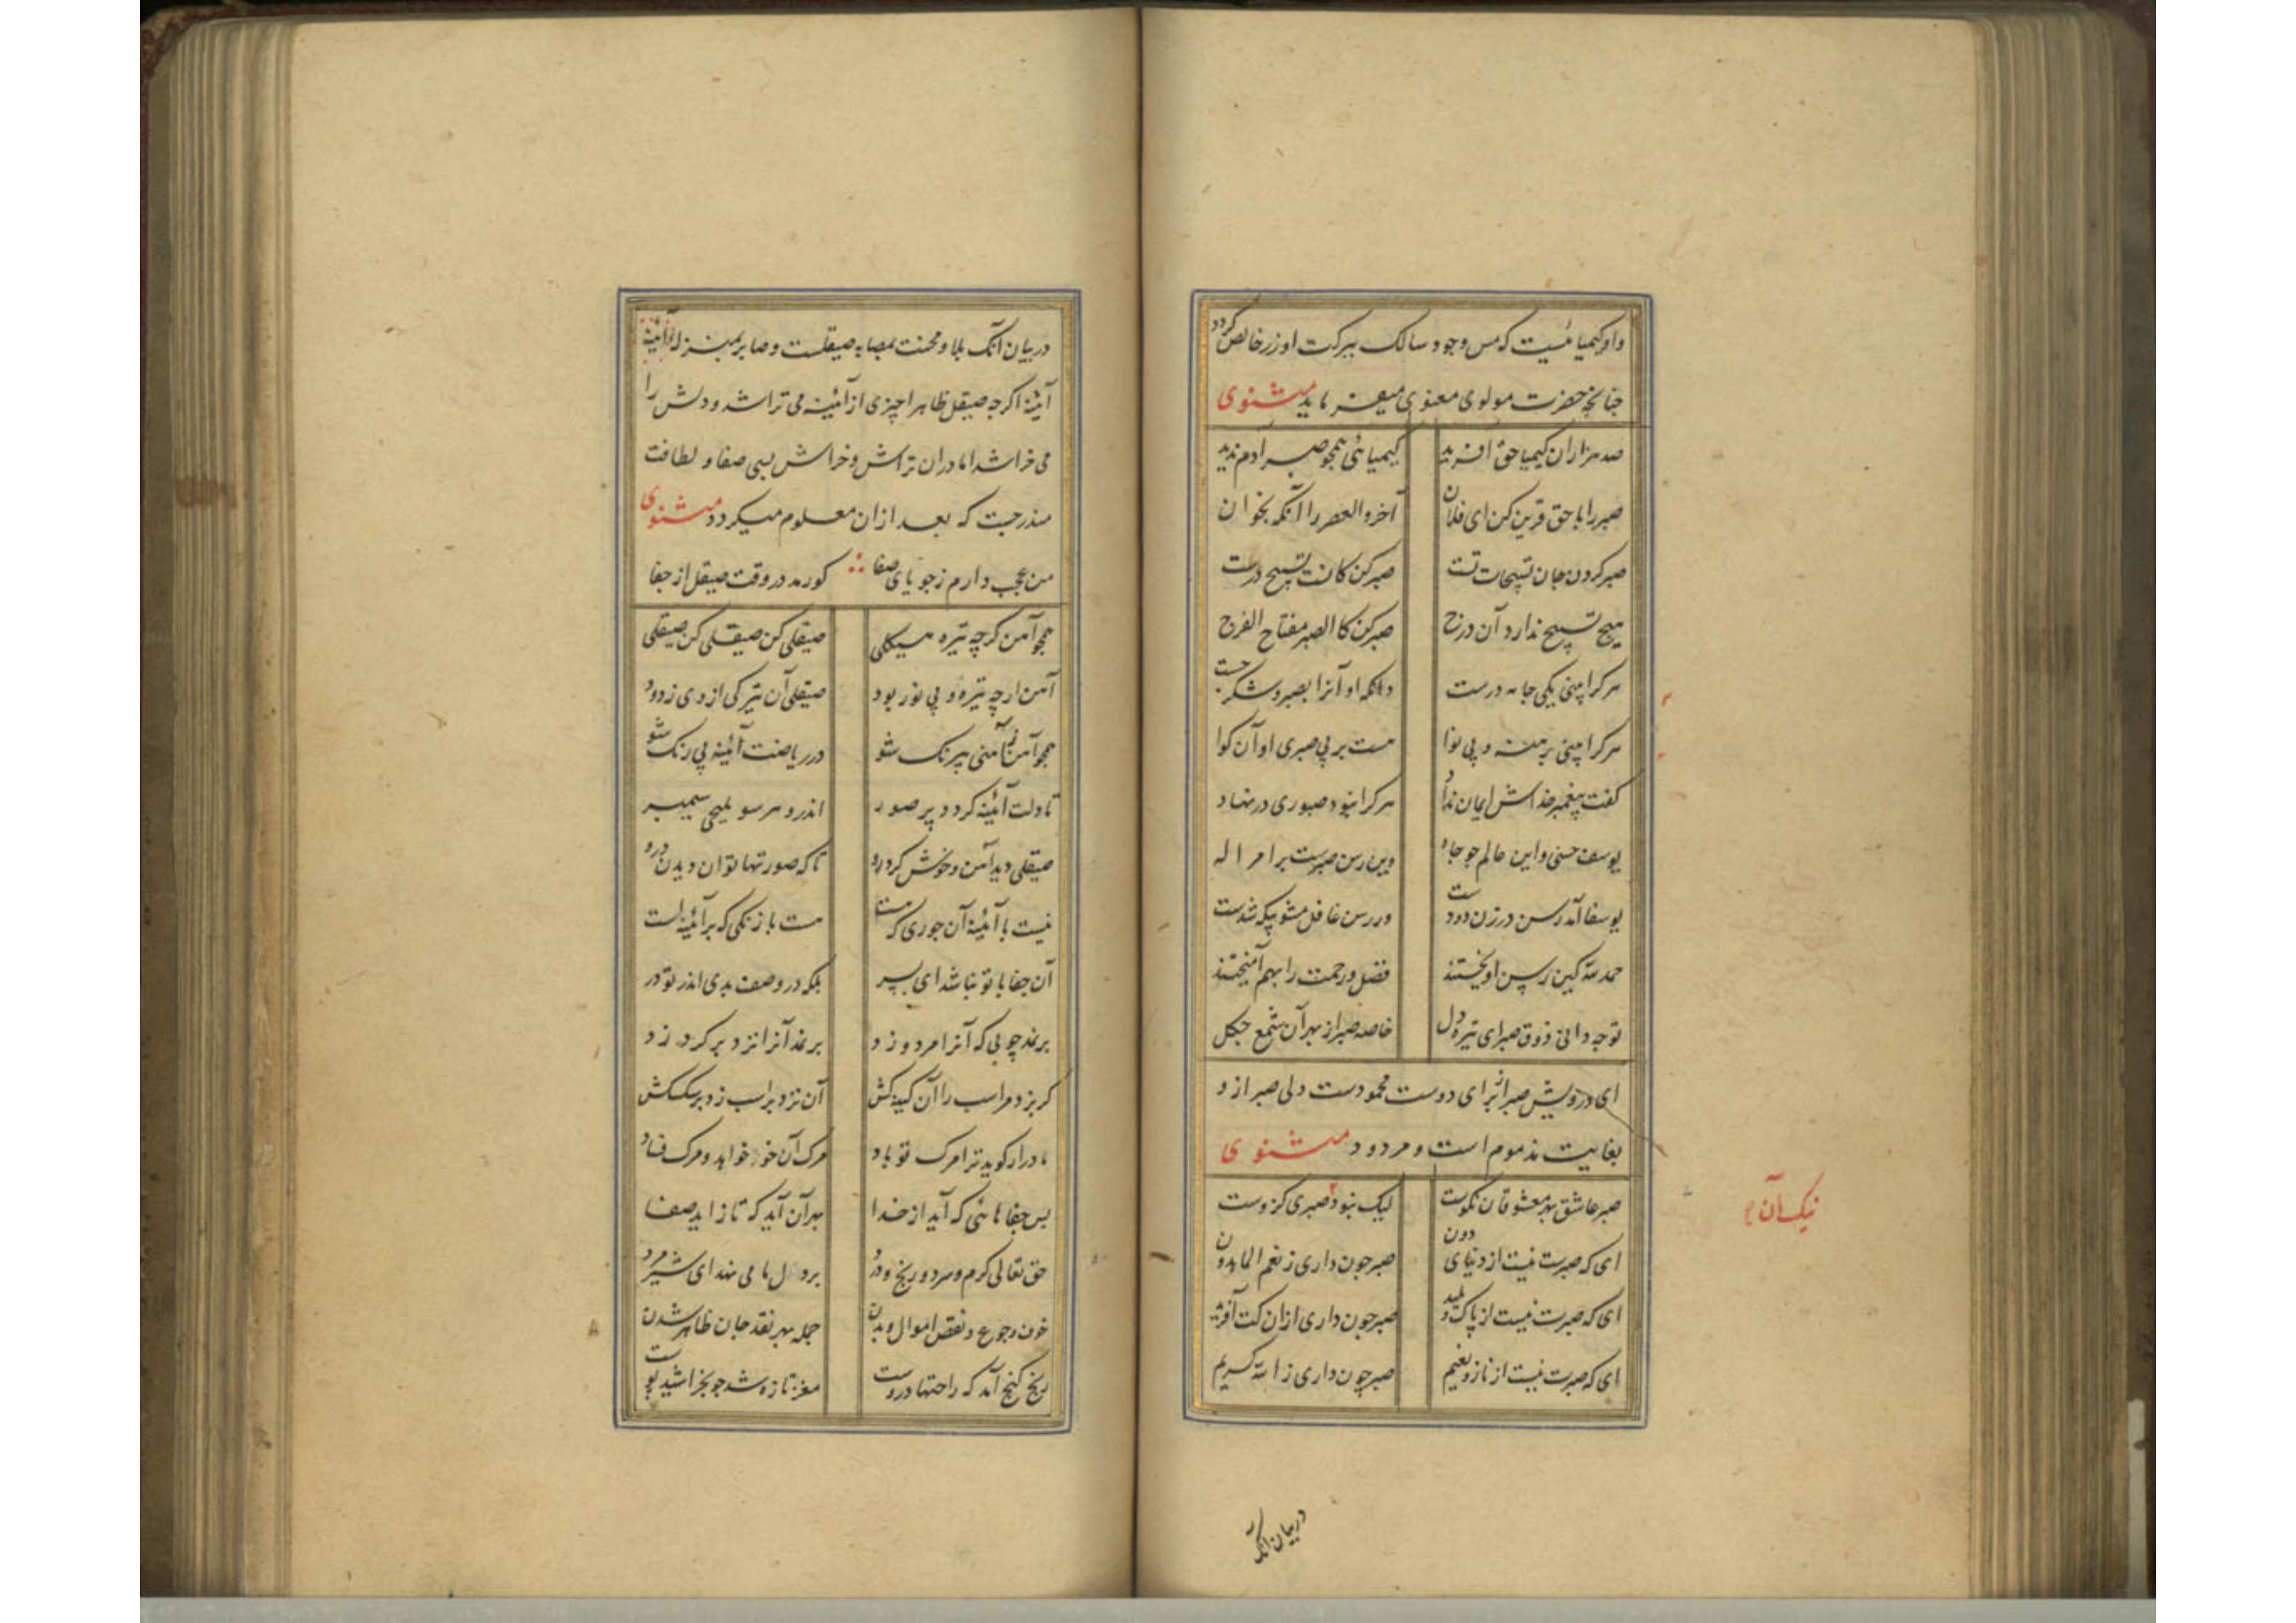 واو کیمیائیست که مس وجود سالک ببرکت او زر خالص گردد
چنانچه حضرت مولوی معنوی میفرماید مثنوی
صد هزاران کیمیا حق آفرید کیمیائی همچو صبر آدم ندید
صبر را با حق قرین کن ای فلان آخر والعصر را آنگه بخوان
صبر کردن جان تسبیحات تست صبر کن کانست تسبیح درست
هیچ تسبیح ندارد آن درج صبر کن کالصبر مفتاح الفرج
هر کرا بینی یکی جامه درست دانکه او آنرا بصبر و شکر جست
هر کرا بینی برهنه و بی نوا هست بر بی صبری او آن گوا
گفت پیغمبر خداش ایمان نداد هر کرا نبود صبوری در نهاد
یوسف حسنی و این عالم چو چاه وین رسن صبرست بر امر اله
یوسفا آمد رسن در زن دو دست ور رسن غافل مشو بیگه شدست
حمد لله کین رسن آویختند فضل و رحمت را بهم آمیختند
تو چه دانی ذوق صبر ای تیره دل خاصه صبر از بهر آن شمع چگل
ای درویش صبر برای دوست محمودست ولی صبر از و
بغایت مذموم است و مردود مثنوی
صبر عاشق بهر معشوقان نکوست لیک نبود صبری کزوست
نیک آن
ای که صبرت نیست از دنیای دون صبر چون داری ز نعم الماهدون
ای که صبرت نیست از پاک و پلید صبر چون داری ازان کت آفرید
ای که صبرت نیست از ناز و نعیم صبر چون داری ز الله کریم
در بیان آنکه
در بیان آنکه بلا و محنت بمصابه صیقلست و صابر بمنزله آئینه
آئینه اگرچه صیقل ظاهرا چیزی از آئینه می تراشد و دلش را
می خراشد اما دران تراش و خراش بسی صفا و لطافت
مندرجست که بعد ازان معلوم میگردد مثنوی
من عجب دارم ز جویای صفا کو رمد در وقت صیقل از جفا
همچو آهن گرچه تیره هیکلی صیقلی کن صیقلی کن صیقلی
آهن ارچه تیره و بی نور بود صیقلی آن تیرگی از وی زدود
همچو آهن ز آهنی بیرنگ شو در ریاضت آئینه بی رنگ شو
تا دلت آئینه گردد پر صور اندرو هر سو ملیحی سیمبر
صیقلی دید آهن و خوش کرد رو تا که صورتها توان دیدن درو
نیست با آئینه آن جوری که هست هست با زنگی که بر آئینه است
آن جفا با تو نباشد ای پسر بلکه در وصف بدی اندر تو در
بر نمد چوبی که آنرا مرد زد بر نمد آنرا نزد بر گرد زد
گر بزد مر اسب را آن کینه کش آن نزد بر اسب زد بر سکسکش
مادر ار گوید ترا مرگ تو باد مرگ آن خو خواهد و مرگ فساد
بس جفاهائی که آید از خدا بهر آن آید که تا زاید صفا
حق تعالی گرم و سرد و رنج و درد بر دل ما می نهد ای شیر مرد
خوف و جوع و نقص اموال و بدن جمله بهر نقد جان ظاهر شدن
رنج گنج آمد که راحتها دروست مغز تازه شد چو بخراشید پوست